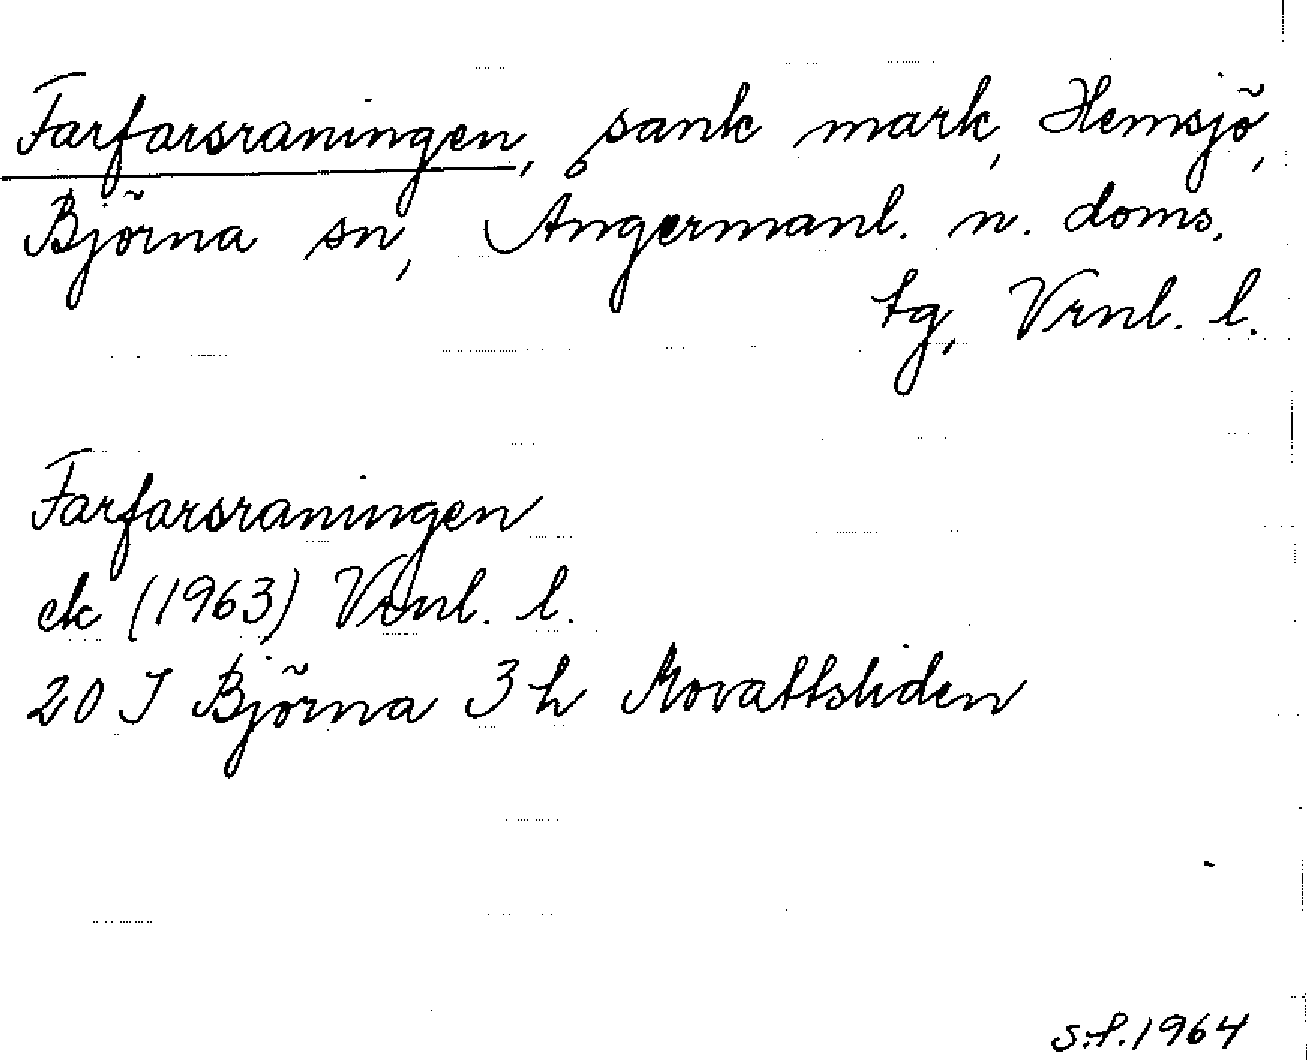 Farfarsraningen, sank mark, Hemsjö,
Björna sn, Ångermanl. n. doms.
tg, Vrnl. l.
Farfarsraningen
ek (1963) Vrnl. l.
20 J Björna 3 h Movattsliden
s.f. 1964